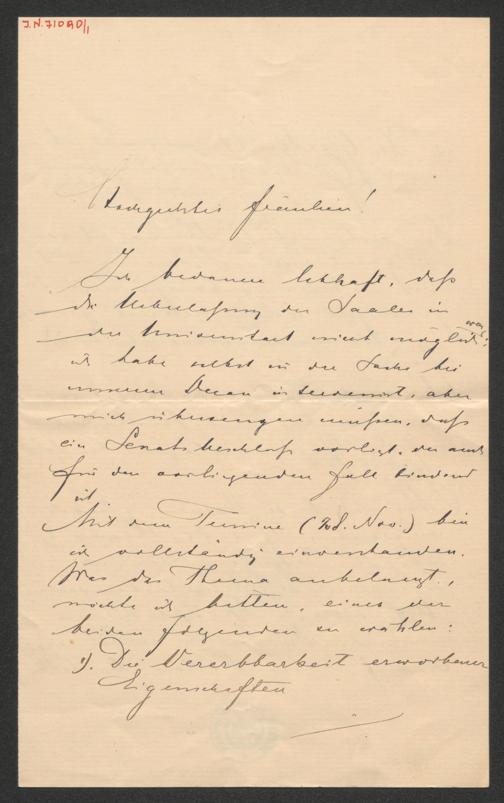 J.N. 71090/1
Hochgeehrtes Fräulein!
Ich bedaure lebhaft, daß
die Ueberlassung des Saales in
der Universitaet nicht möglich war;
ich habe selbst in der Sache bei
unserem Decan interveniert, aber
mich überzeugen müssen, daß
ein Senatsbeschluß vorliegt, der auch
für den vorliegenden Fall bindend
ist
Mit dem Termine (28. Nov.) bin
ich vollständig einverstanden.
Was das Thema anbelangt,
möchte ich bitten, eines der
beiden folgenden zu wählen:
1). Die Vererbbarkeit erworbener
Eigenschaften